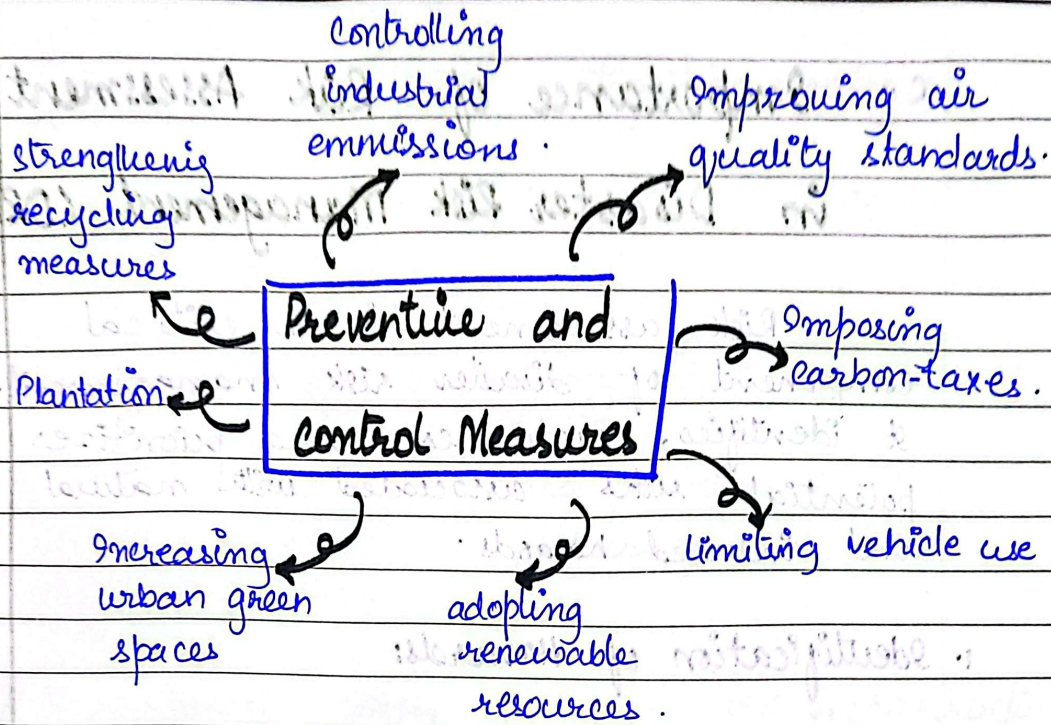 controlling
industrial
emmissions .
Improving air
quality standards.
strengthenig
recycling
measures
Preventive and
control Measures
Imposing
carbon-taxes.
Plantation
limiting vehicle use
Increasing
urban green
spaces
adopting
renewable
resources .